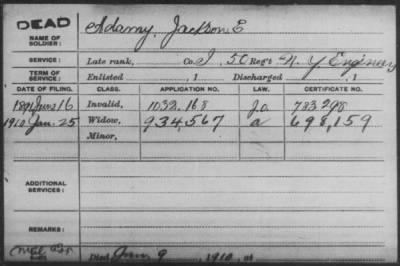 DEAD
NAME OF SOLDIER: Adamy, Jackson E
SERVICE: Late rank, Co. I, 50 Reg't N. Y. Engineers
TERM OF SERVICE: Enlisted , 1 Discharged , 1
DATE OF FILING. CLASS. APPLICATION NO. LAW. CERTIFICATE NO.
1891 June 16 Invalid, 1032.168 783298
1910 Jan. 25 Widow, 934,567 a 698,159
Minor,
ADDITIONAL SERVICES:
REMARKS:
Died Jan 9, 1910, at